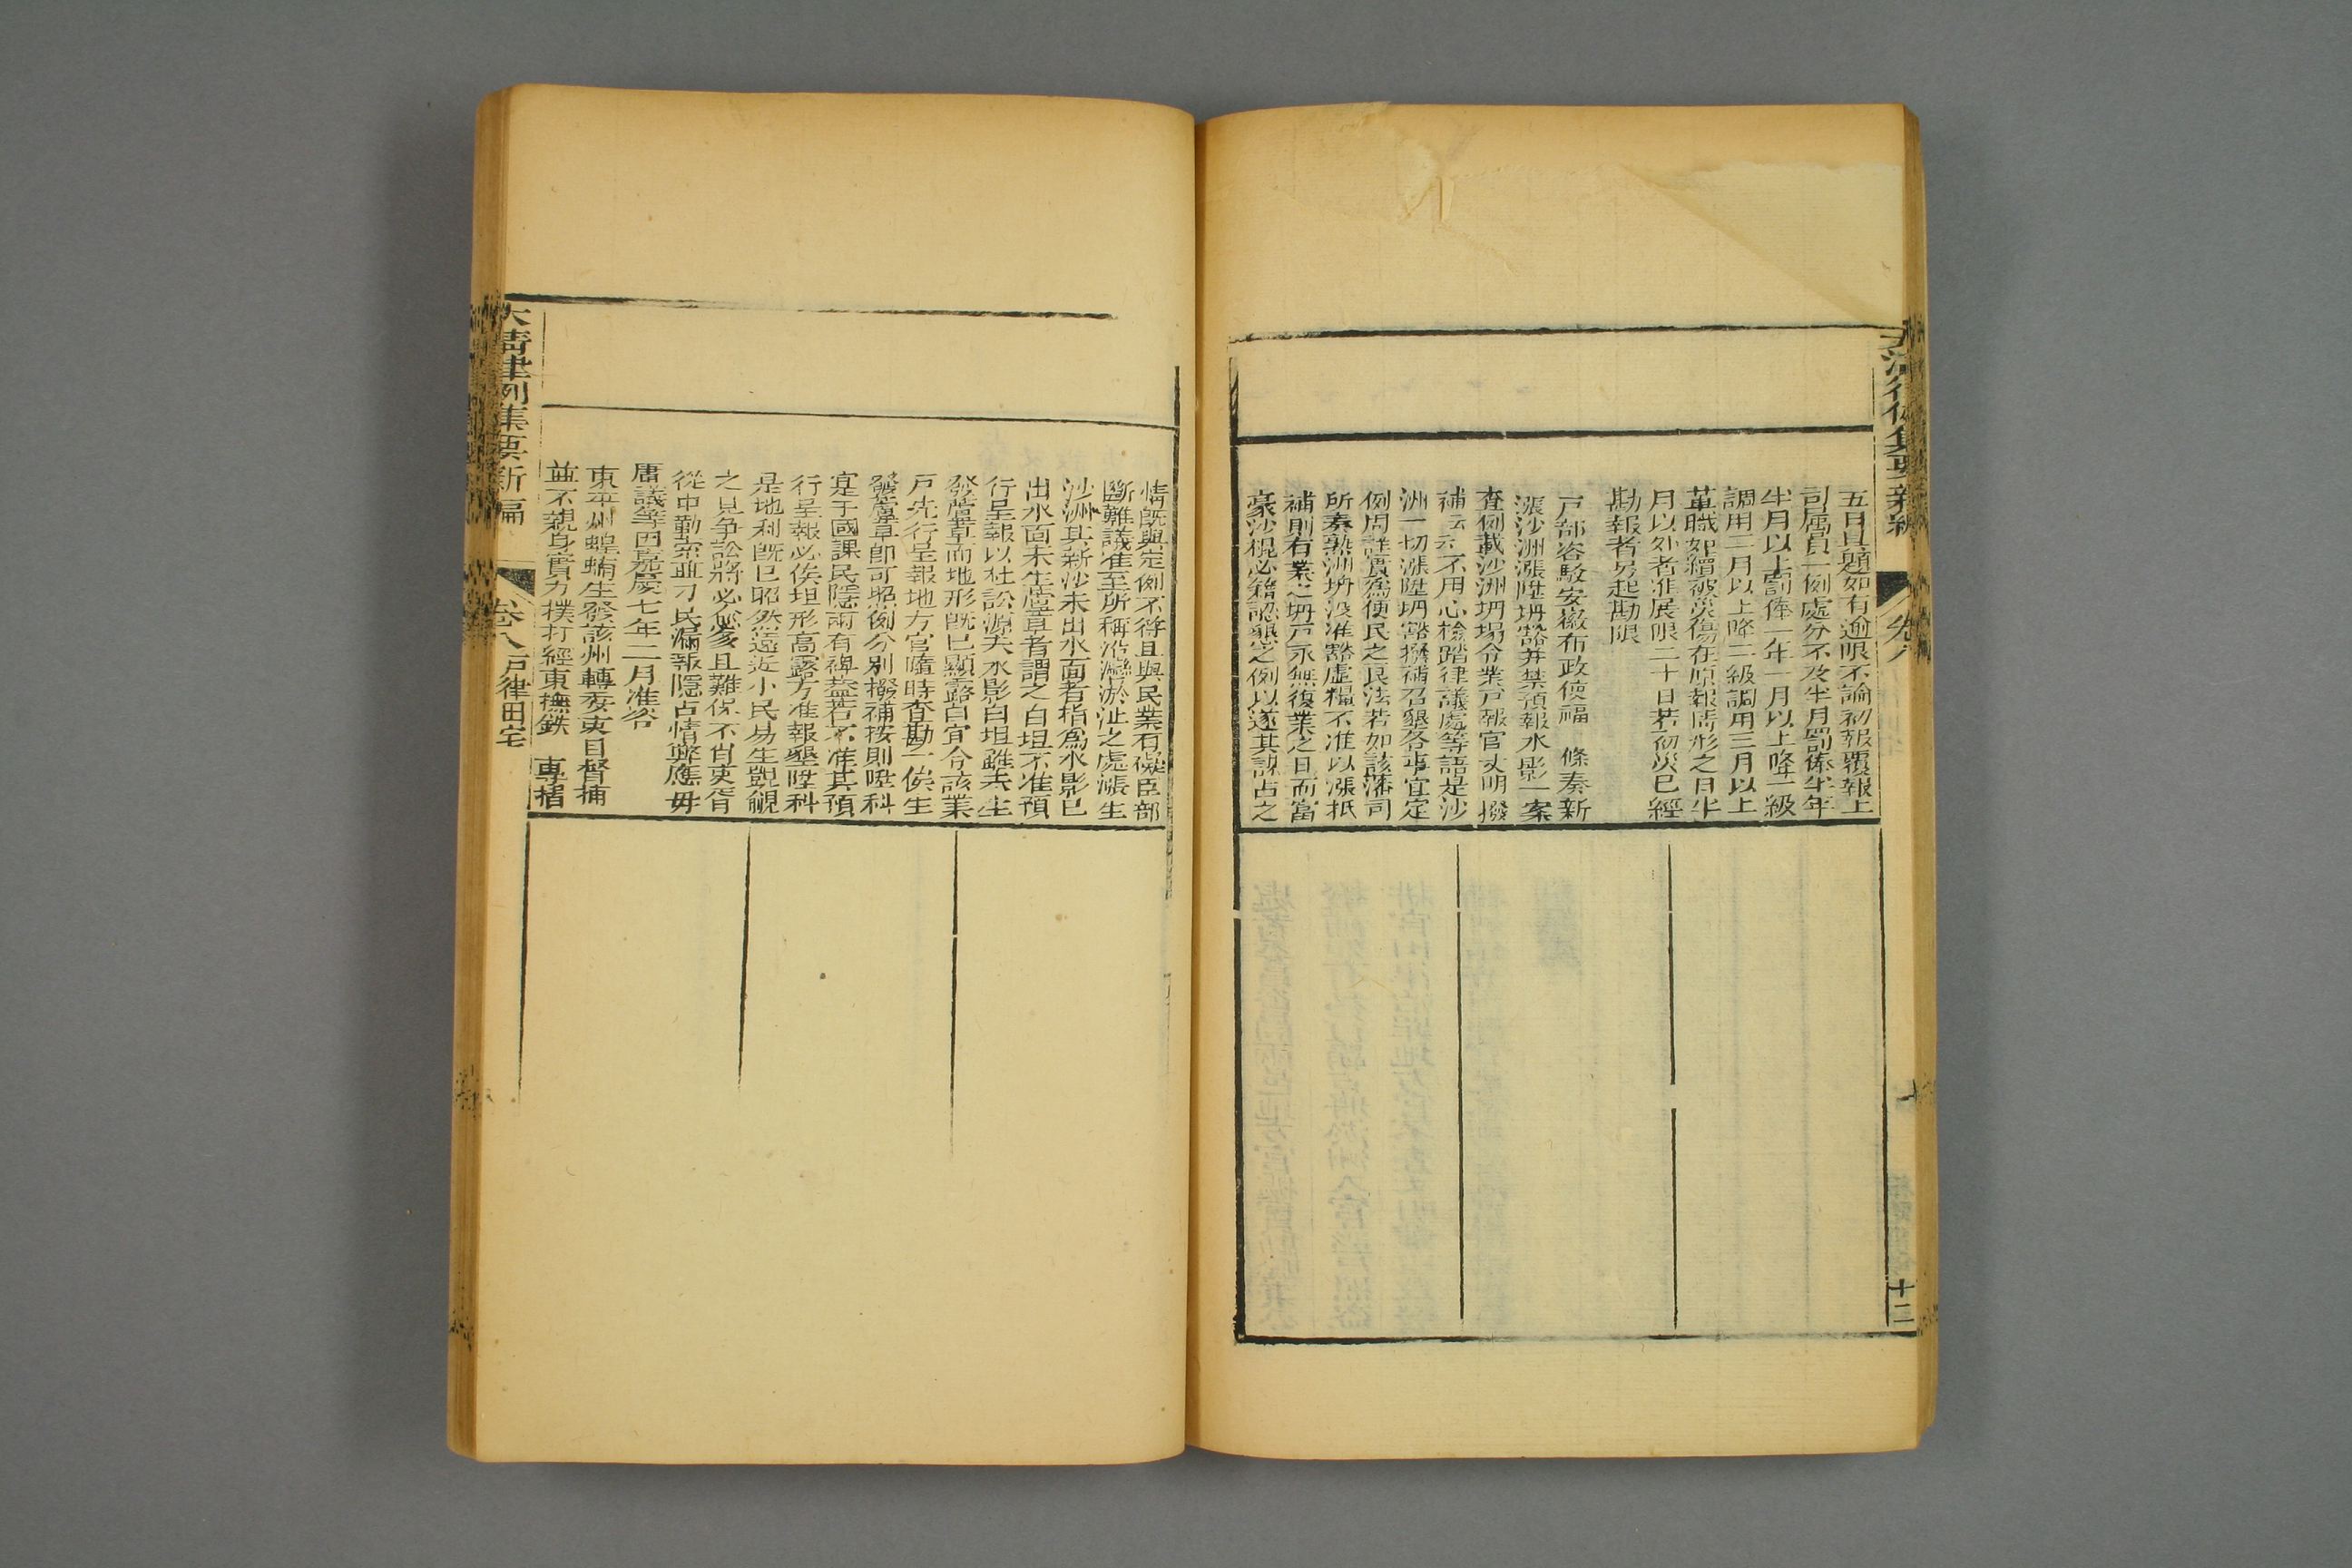 五日具題如有逾限不論初報覆報上
司屬員一例處分不及半月罰俸半年
半月以上罰俸一年一月以上降一級
調用二月以上降二級調用三月以上
革職如續被災傷在原報情形之日半
月以外者准展限二十日若初災已經
勘報者另起勘限
戶部咨駁安徽布政使福 條奏新
漲沙洲漲陞坍豁并禁預報水影一案
查例載沙洲坍塌令業戶報官丈明撥
補云云不用心檢踏律議處等語是沙
洲一切漲陞坍豁撥補召墾各事宜定
例周詳實為便民之良法若如該藩司
所奏熟洲坍沒准豁虛糧不准以漲抵
補則有業之坍戶永無復業之日而富
豪沙棍必藉認墾之例以遂其謀占之
情既與定例不符且與民業有礙臣部
斷難議准至所稱沿灘淤沚之處漲生
沙洲其新沙未出水面者指為水影已
出水面未生蘆草者謂之白坦不准預
行呈報以杜訟源夫水影白坦雖未生
發蘆草而地形既已顯露自宜令該業
戶先行呈報地方官隨時查勘一俟生
發蘆草即可照例分別撥補按則陞科
寔于國課民隱兩有裨益若不准其預
行呈報必俟坦形高露方准報墾陞科
是地利既已昭然遠近小民易生覬覦
之見爭訟將必愈多且難保不肖吏胥
從中勒索並刁民漏報隱占情弊應毋
庸議等因嘉慶七年二月准咨
東平州蝗蝻生發該州轉委吏目督捕
並不親身實力撲打經東撫鉄 專摺
大清律例集要新編
卷八
十二
大清律例集要新編 卷八 戶律田宅